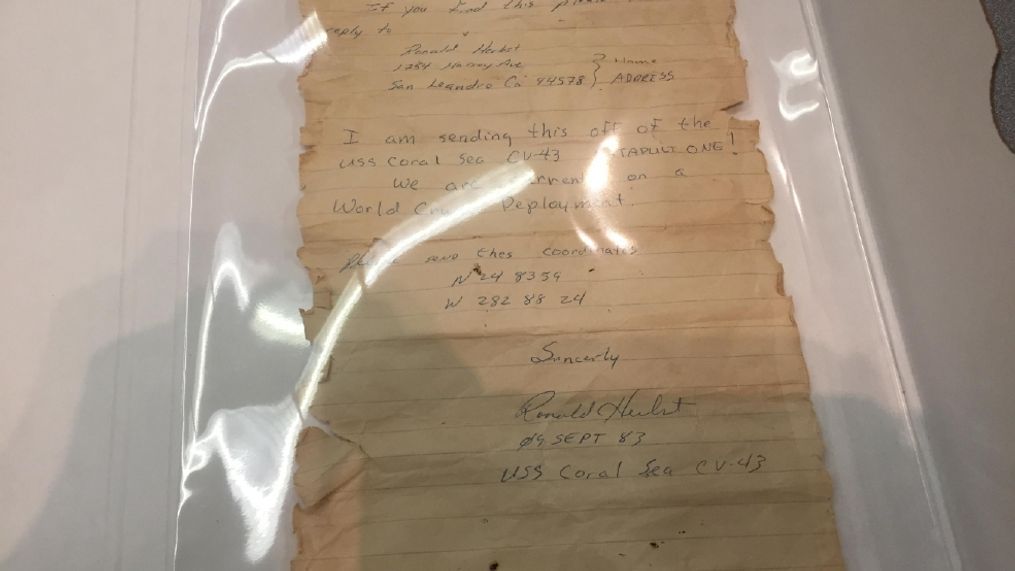 If you find this please
reply to
Ronald Herbst
1784 Ave
San Leandro Ca 94578 } Home
ADDRESS
I am sending this off of the
USS Coral Sea CV-43 TAPULT ONE!
We are rren on a
World Cru Deployment.
send thes coordinates
N 24 8359
W 282 88 24
Sincerly
Ronald Herbst
09 SEPT 83
USS Coral Sea CV-43